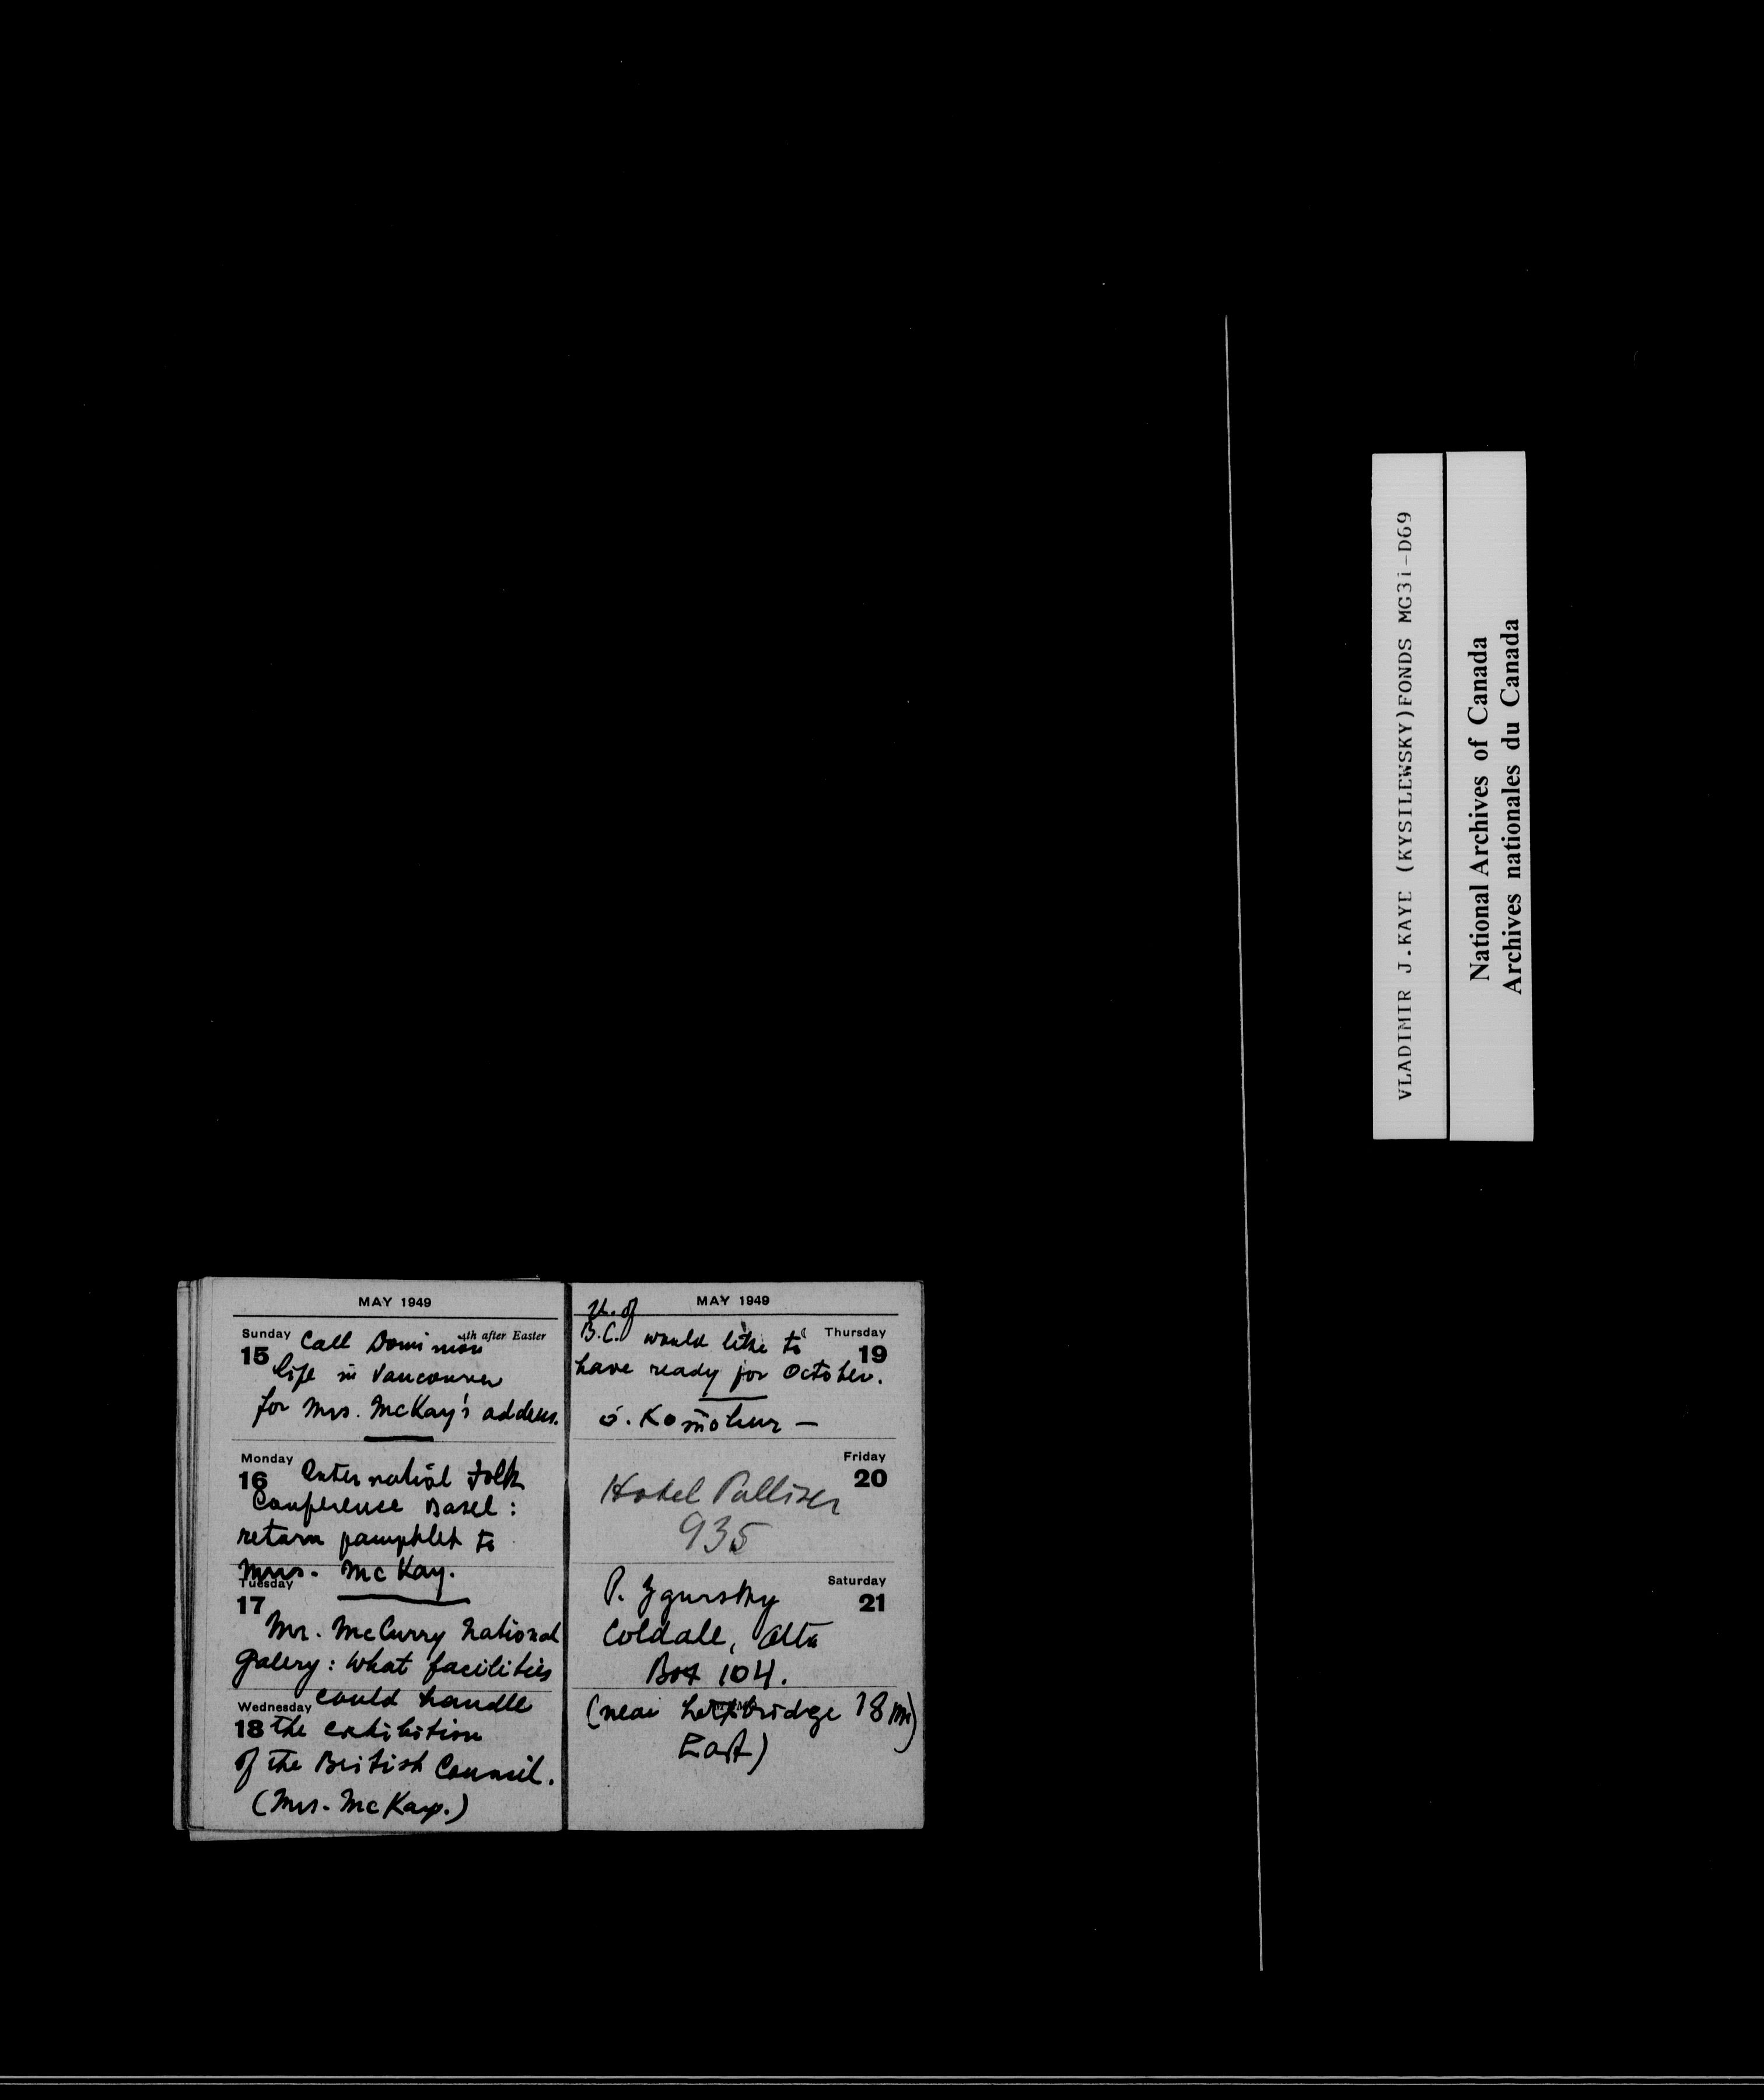 MAY 1949
Sunday 4th after Easter
15 Call Dominion
life in Vancouver
for Mrs. McKay's address.
Monday
16 Internatiol Folk
Conference Basel:
return pamphlet to
Mrs. McKay.
Tuesday
17
Mr. McCurry National
Galery: What facilities
could handle
Wednesday
18 the exhibition
of the British Council.
(Mrs. McKay.)
MAY 1949
U. of
B.C. would like to
Thursday
19
have ready for October.
Friday
20
Hotel Palliser
935
Saturday
21
P. Zgursky
Coldale, Alta
Box 104.
(near Lethbridge 18 mi)
East)
VLADIMIR J.KAYE (KYSILEWSKY)FONDS MG3i-D69
National Archives of Canada
Archives nationales du Canada